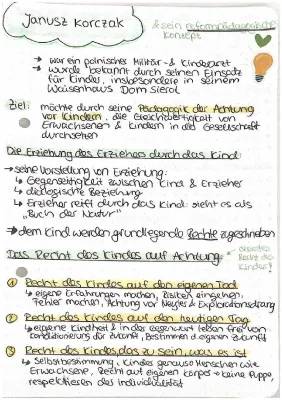 Janusz Korczak
& sein reformpädagogisches
Konzept
→ war ein polnischer Militär- & Kinderarzt
→ wurde bekannt durch seinen Einsatz
für Kinder, insbesondere in seinem
Waisenhaus Dom Sierot
Ziel: möchte durch seine Pädagogik der Achtung
vor Kindern, die Gleichwertigkeit von
Erwachsenen & Kindern in der Gesellschaft
durchsetzen
Die Erziehung des Erziehers durch das Kind
→ seine Vorstellung von Erziehung:
↳ Gegenseitigkeit zwischen Kind & Erzieher
↳ dialogische Beziehung
↳ Erzieher reift durch das Kind: sieht es als
„Buch der Natur"
→ dem Kind werden grundlegende Rechte zugeschrieben
Das Recht des Kindes auf Achtung
Recht des
Kindes!
1 Recht des Kindes auf den eigenen Tod
↳ eigene Erfahrungen machen, Risiken eingehen,
Fehler machen, Achtung vor Neugier & Explorationsdrang
2 Recht des Kindes auf den heutigen Tag
↳ eigene Kindheit & in der Gegenwart leben frei von
Konditionierung für Zukunft, Bestimmen d. eigenen Zukunft
3 Recht des Kindes, das zu sein, was es ist
↳ Selbstbestimmung, Kinder genauso Menschen wie
Erwachsene, Recht auf eigenen Körper → keine Puppe,
respektieren der Individualität